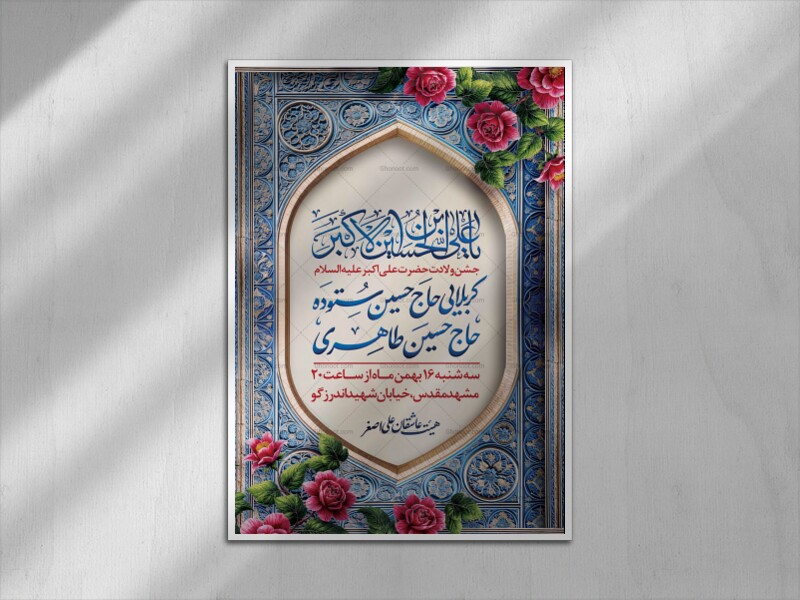 یا علی ابن الحسین الاکبر
جشن ولادت حضرت علی اکبر علیه السلام
کربلایی حاج حسین ستوده
حاج حسین طاهری
سه شنبه ۱۶ بهمن ماه از ساعت ۲۰
مشهد مقدس، خیابان شهید اندرزگو
هیئت عاشقان علی اصغر